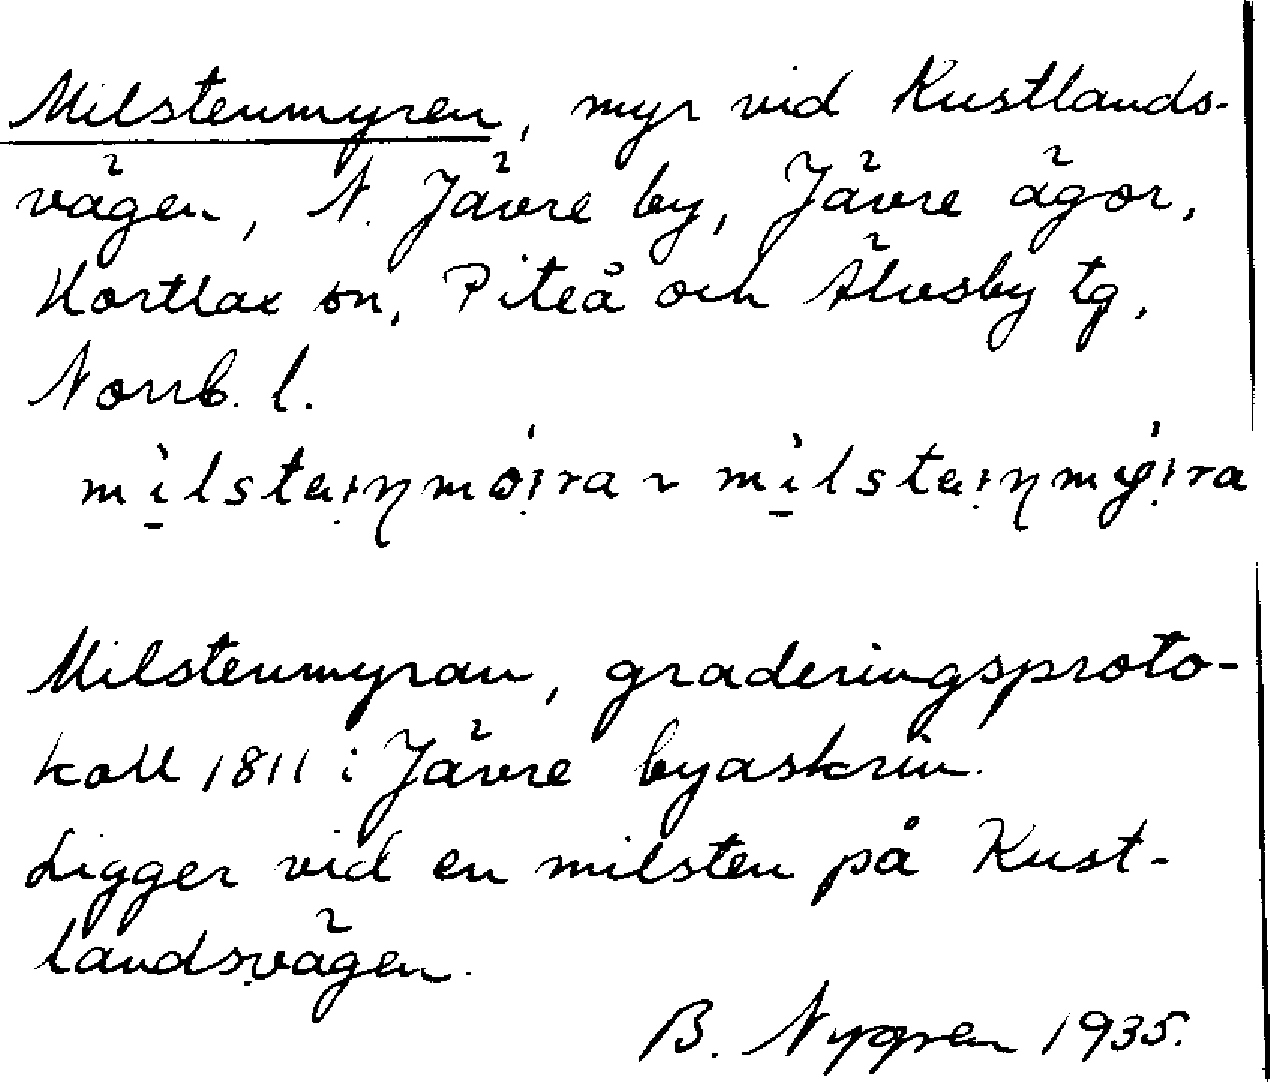 Milstenmyren, myr vid Kustlands-
vägen, N. Jävre by, Jävre ägor,
Hortlax sn, Piteå och Älvsby tg,
Norrb. l.
Milstenmyran, graderingsproto-
koll 1811 i Jävre byaskrin.
Ligger vid en milsten på Kust-
landsvägen.
B. Nygren 1935.